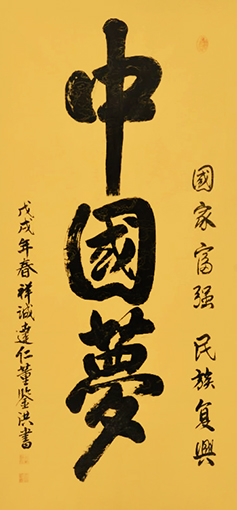 國家富强 民族复興
中國夢
戊戌年春祥诚達仁董鉴洪書